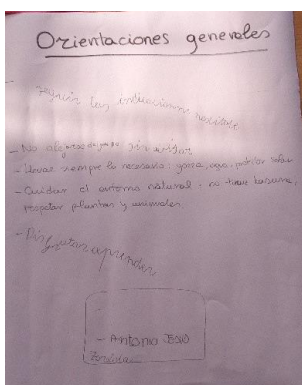 Orientaciones generales
- Seguir las indicaciones
- No alejarse del grupo sin avisar
- Llevar siempre lo necesario: gorra, agua, protector solar
- Cuidar el entorno natural: no tirar basura,
respetar plantas y animales.
- Disfrutar y aprender
- Antonio Jesús